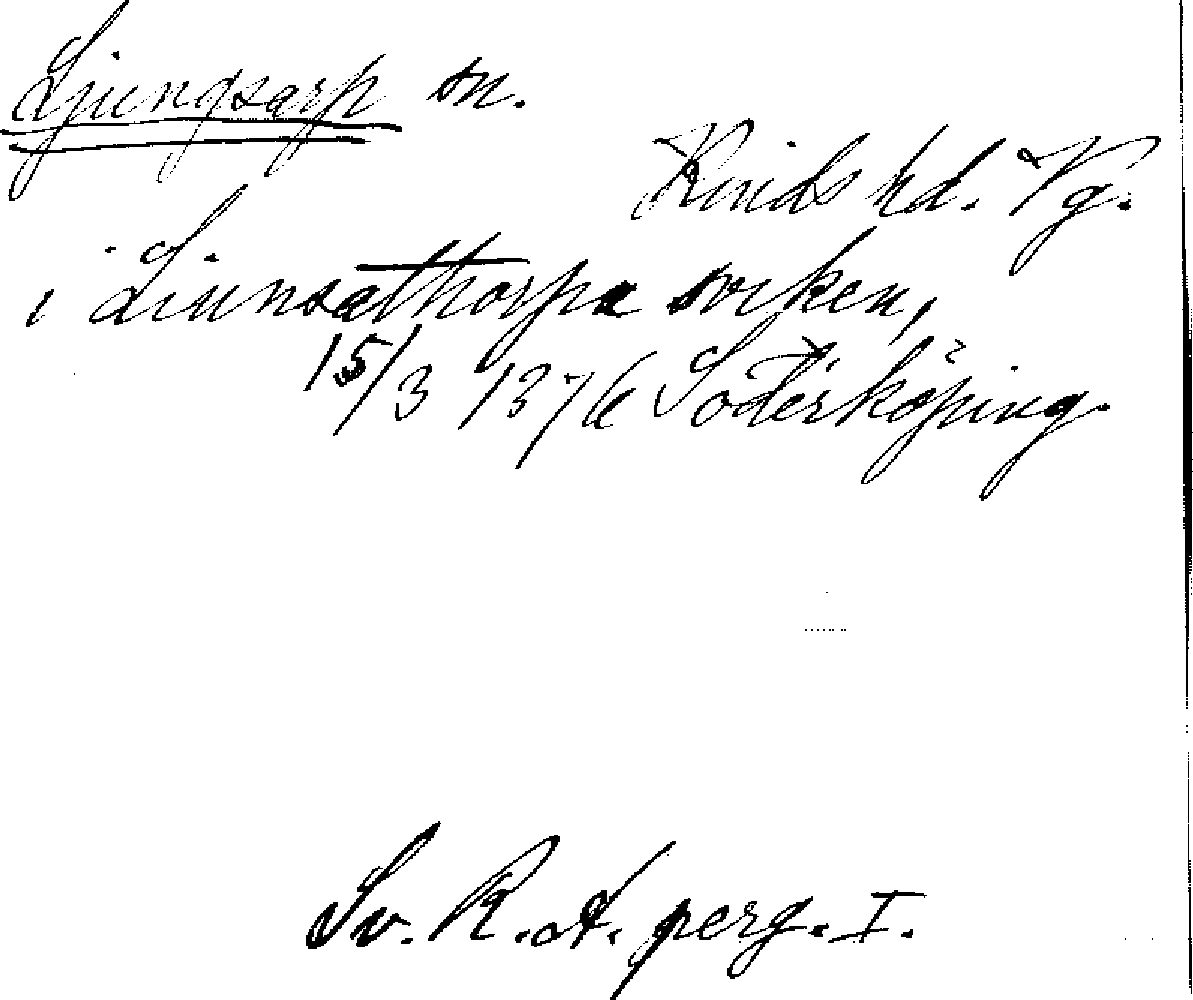 Ljungsarp sn.
Kinds hd. Vg.
i Liunsathorpa soken,
15/3 1376 Söderköping.
Sv. R. A. perg. I.